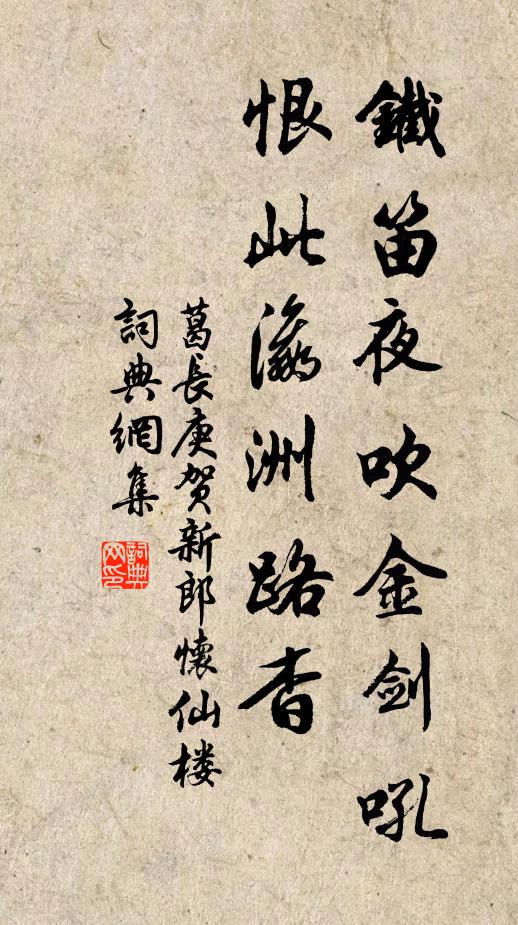 鐵笛夜吹金劍吼
恨此瀛洲路杳
葛長庚賀新郎懷仙楼
詞典網集
詞典网印